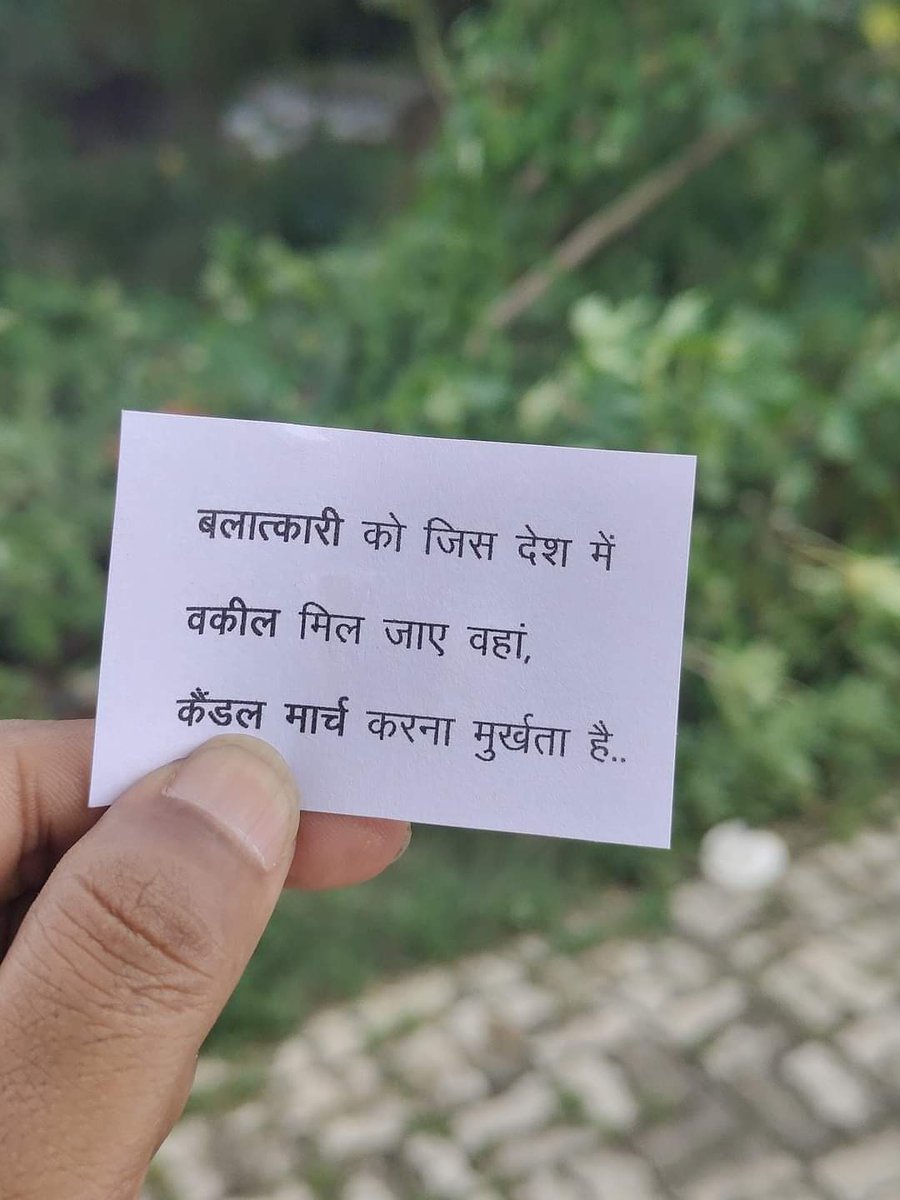 बलात्कारी को जिस देश में
वकील मिल जाए वहां,
कैंडल मार्च करना मुर्खता है..